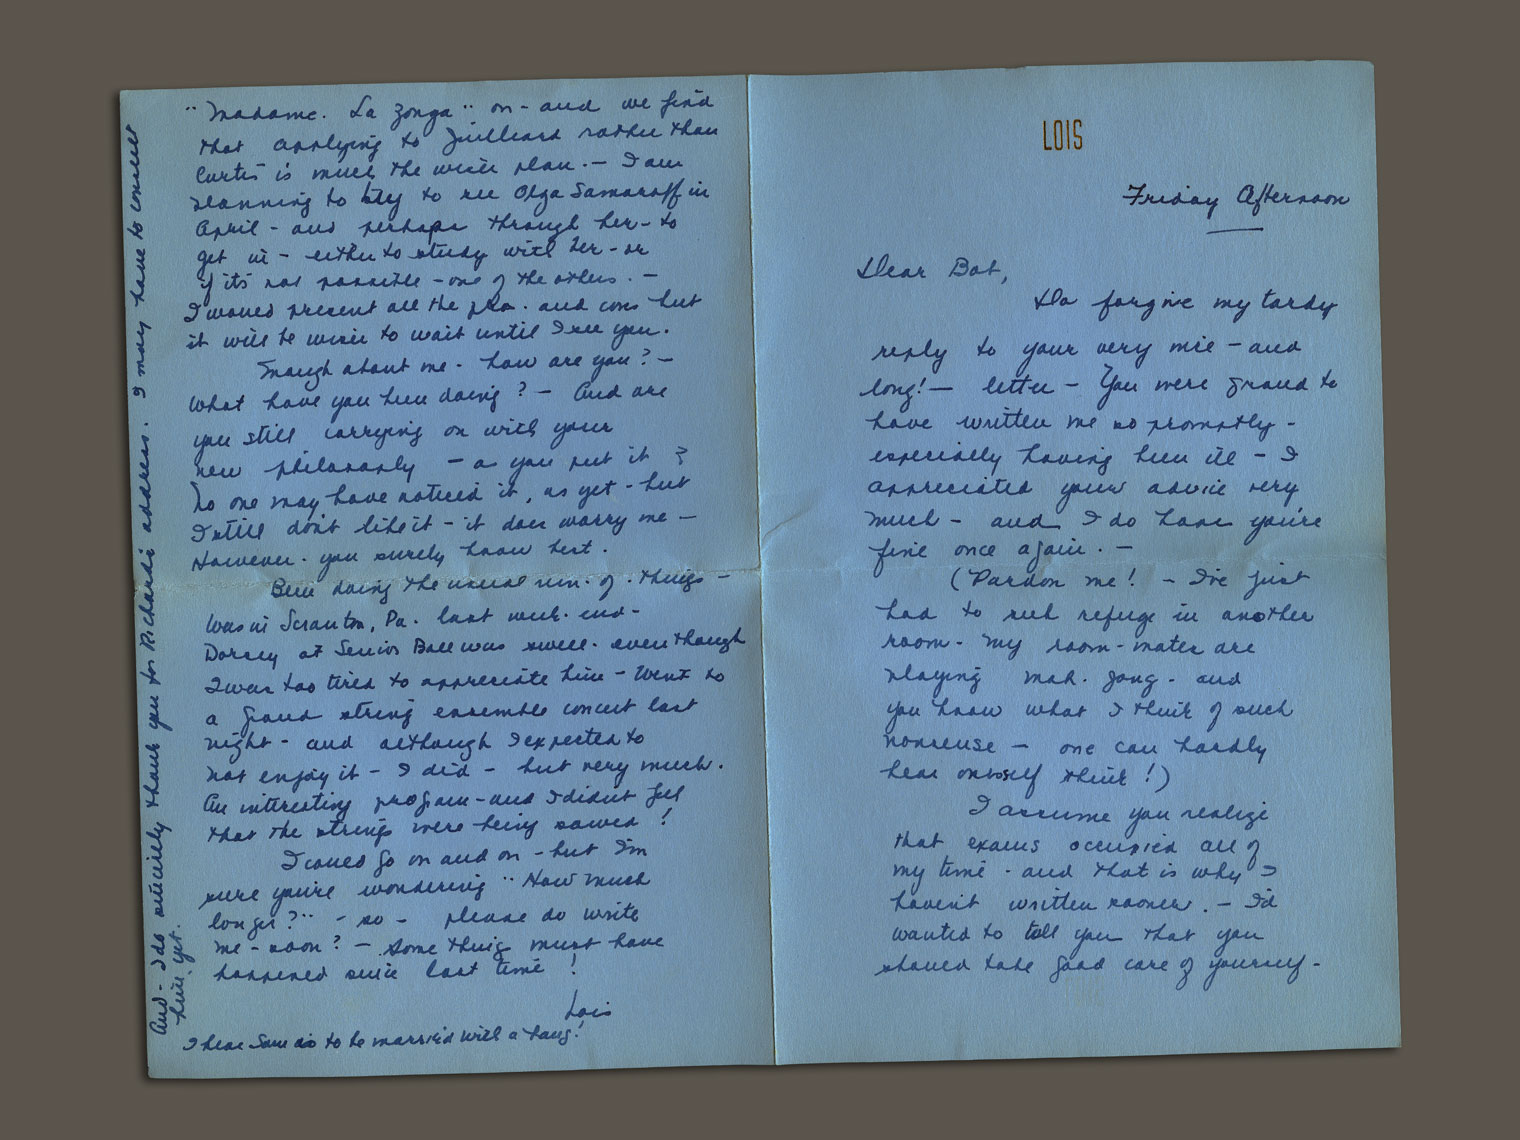 LOIS
Friday Afternoon
Dear Bob,
Do forgive my tardy
reply to your very nice - and
long! - letter - You were grand to
have written me so promptly -
especially having been ill - I
appreciated your advice very
much - and I do hope you're
fine once again. -
(Pardon me! - I've just
had to seek refuge in another
room - my room-mates are
playing mah. jong - and
you know what I think of such
nonsense - one can hardly
hear oneself think!)
I assume you realize
that exams occupied all of
my time - and that is why I
haven't written sooner. - I'd
wanted to tell you that you
should take good care of yourself -
"Madame. La Zonga" on - and we find
that applying to Juilliard rather than
Curtis is much the wiser plan. - I am
planning to try to see Olga Samaroff in
April - and perhaps through her - to
get in - either to study with her - or
if it's not possible - one of the others. -
I would present all the pro. and cons but
it will be wiser to wait until I see you.
Enough about me - how are you? -
What have you been doing? - And are
you still carrying on with your
new philosophy - as you put it?
No one may have noticed it, as yet - but
I still don't like it - it does worry me -
However. you surely know best.
Been doing the usual run. of. things -
Was in Scranton, Pa. last week-end -
Dorsey at Senior Ball was swell - even though
I was too tired to appreciate him - Went to
a grand string ensemble concert last
night - and although I expected to
not enjoy it - I did - but very much.
An interesting program - and I didn't feel
that the strings were being sawed!
I could go on and on - but I'm
sure you're wondering "How much
longer?" - so - please do write
me - soon? - Some thing must have
happened since last time!
Lois
I hear Sam is to be married with a bang!
And - I do sincerely thank you for Richard's address. I may have to consult
him, yet.